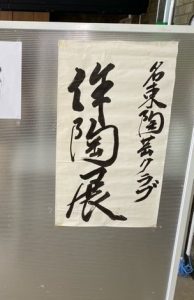 名東陶芸クラブ
作陶展